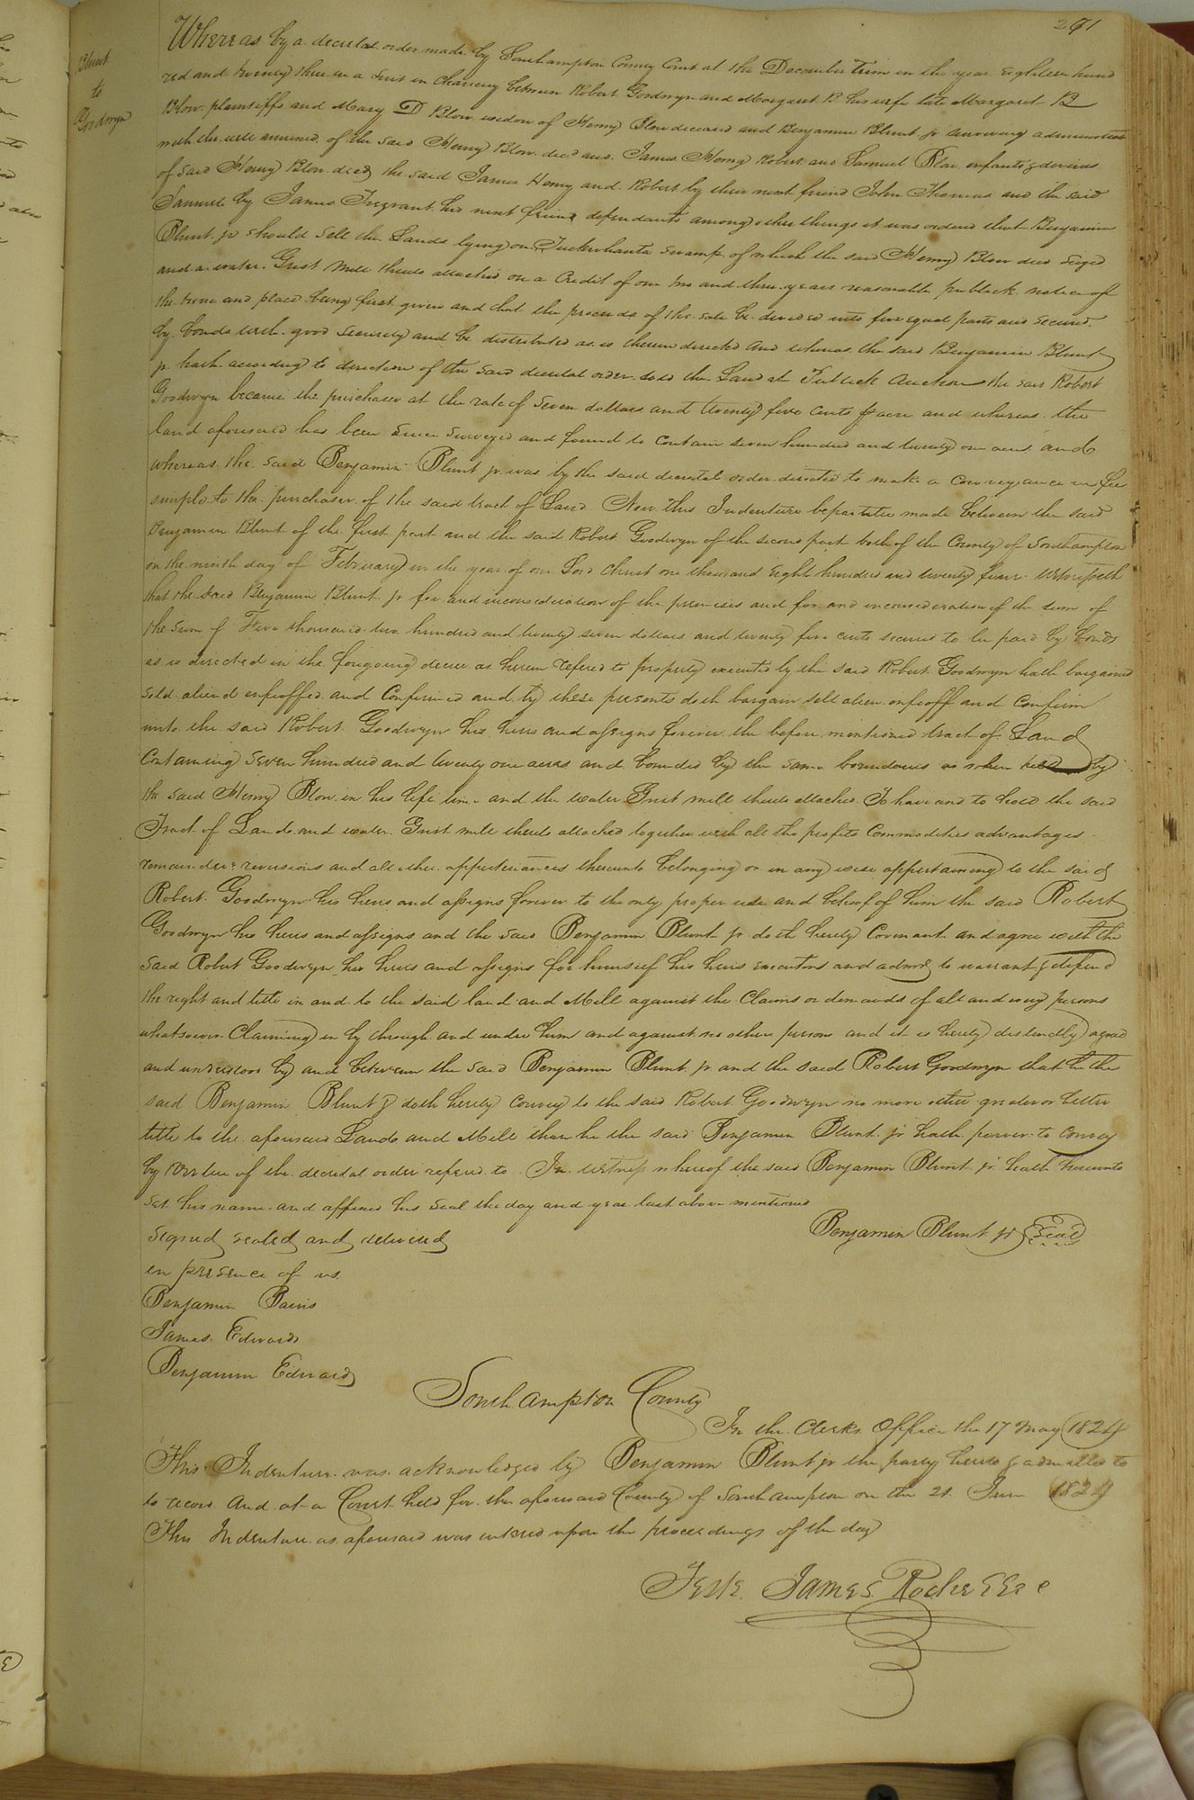 291
Blunt
to
Goodwyn
Whereas by a decretal order made by Southampton County Court at the December Term in the year eighteen hund
red and twenty three in a suit in chancery between Robert Goodwyn and Margaret B his wife late Margaret B
Blow plaintiffs and Mary D Blow widow of Henry Blow deceased and Benjamin Blunt jr surviving administrator
with the will annexed of the said Henry Blow decd and James Henry Robert and Samuel Blow infants & devisees
of said Henry Blow decd the said James Henry and Robert by their next friend John Thomas and the said
Samuel by James Trezvant his next friend defendants among other things it was ordered that Benjamin
Blunt jr should sell the Lands lying on swamp of which the said Henry Blow died seized
and a water Grist Mill thereto attached on a Credit of one two and three years reasonable publick notice of
the time and place being first given and that the proceeds of the sale be devided into five equal parts and secured
by bonds with good security and be distributed as is therein directed And whereas the said Benjamin Blunt
jr hath according to direction of the said decretal order sold the Land at Publick Auction the said Robert
Goodwyn became the purchaser at the rate of seven dollars and twenty five cents pr acre and whereas the
land aforesaid has been since surveyed and found to contain seven hundred and twenty one acres and
whereas the said Benjamin Blunt jr was by the said decretal order directed to make a conveyance in fee
simple to the purchaser of the said tract of Land Now This Indenture made between the said
Benjamin Blunt of the first part and the said Robert Goodwyn of the second part both of the County of Southampton
on the ninth day of February in the year of our Lord Christ one thousand eight hundred and twenty four Witnesseth
that the said Benjamin Blunt jr for and in consideration of the premises and for and in consideration of the sum of
the sum of Five thousand two hundred and twenty seven dollars and twenty five cents secured to be paid by bonds
as is directed in the foregoing decree as herein refered to properly executed by the said Robert Goodwyn hath bargained
sold aliend enfeoffed and Confirmed and by these presents doth bargain sell alien enfeoff and confirm
unto the said Robert Goodwyn his heirs and assigns forever the before mentioned tract of Land
Containing seven hundred and twenty one acres and bounded by the same boundaries as when held by
the said Henry Blow in his life time and the water Grist mill thereto attached To have and to hold the said
Tract of Land and water Grist mill thereto attached together with all the profits commodities advantages
remainders reversions and all other appurtenances thereunto belonging or in any wise appertaining to the said
Robert Goodwyn his heirs and assigns forever to the only proper use and behoof of him the said Robert
Goodwyn his heirs and assigns and the said Benjamin Blunt jr doth hereby Covenant and agree with the
said Robert Goodwyn his heirs and assigns for himself his heirs executors and admors to warrant & defend
the right and title in and to the said land and Mill against the Claims or demands of all and every persons
whatsoever Claiming in by through and under him and against no other person and it is hereby distinctly agreed
and understood by and between the said Benjamin Blunt jr and the said Robert Goodwyn that he the
said Benjamin Blunt jr doth hereby Convey to the said Robert Goodwyn no more other greater or better
title to the aforesaid Lands and Mill than he the said Benjamin Blunt jr hath power to Convey
by Virtue of the decretal order refered to In witness whereof the said Benjamin Blunt jr hath hereunto
set his name and affixed his seal the day and year last above mentioned
Signed sealed and delivered
Benjamin Blunt jr Seal
in presence of us
Benjamin
James Edwards
Benjamin Edwards
Southampton County
In the Clerks Office the 17 May 1824
This Indenture was acknowledged by Benjamin Blunt jr the party hereto & admitted to
to record And at a Court held for the aforesaid County of Southampton on the 21 June 1824
This Indenture as aforesaid was entered upon the proceedings of the day
Teste James Rochelle